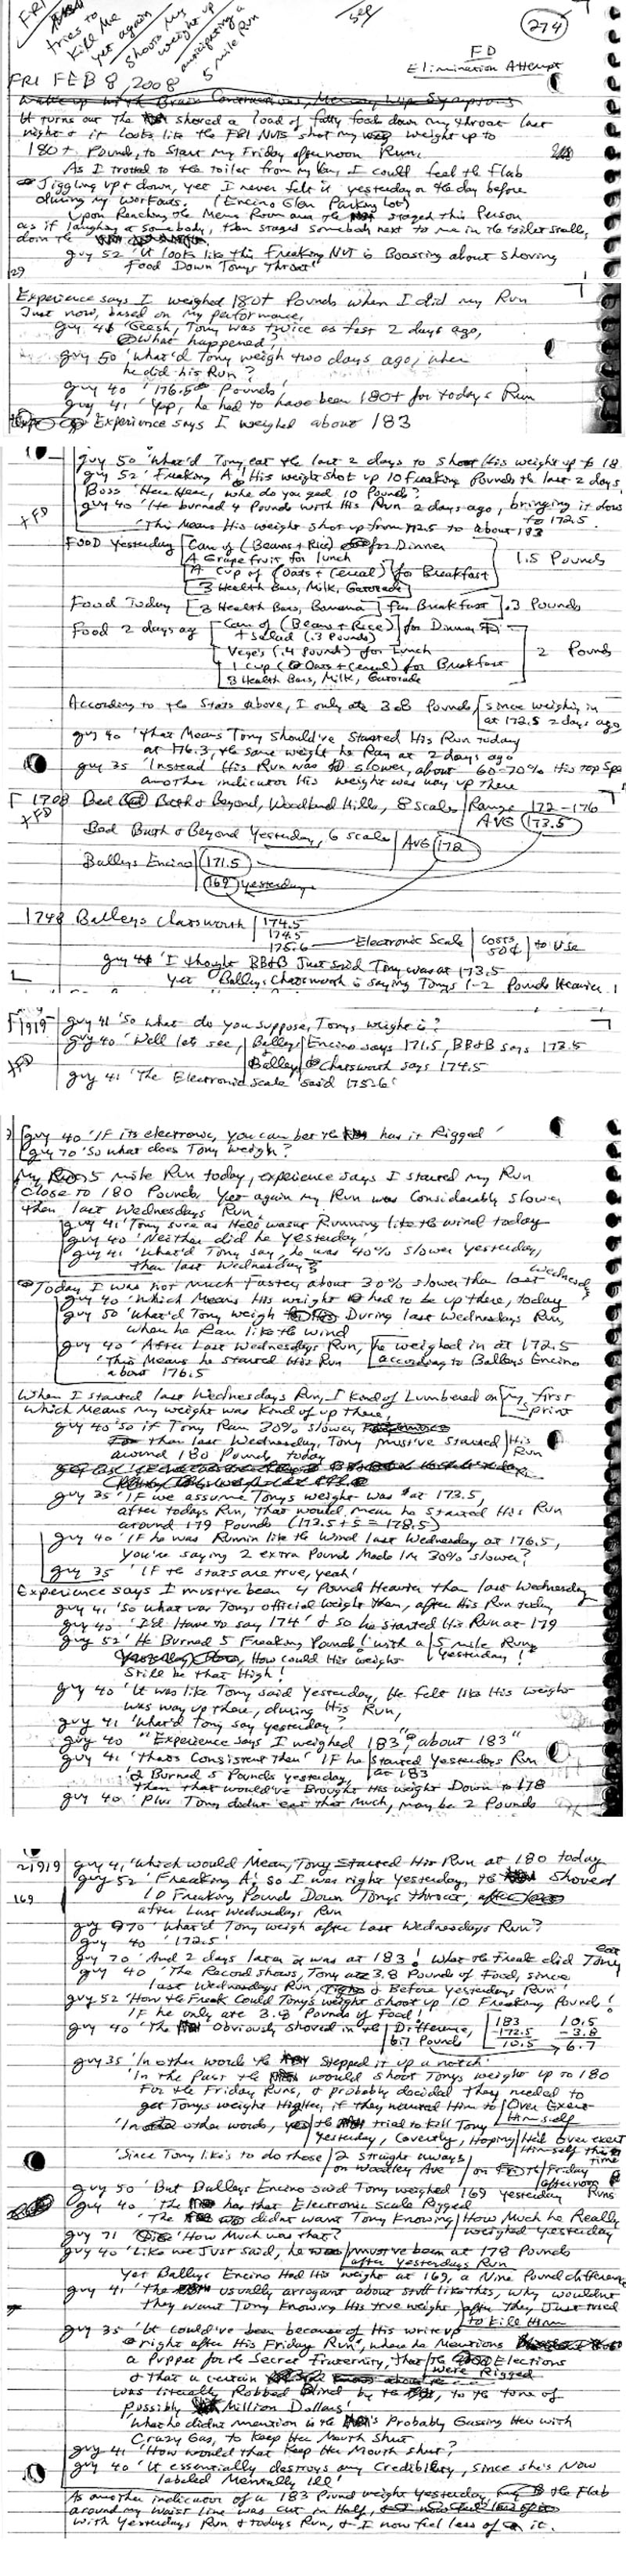 FRI
tries to
Kill Me
yet again
Shoots My
weight up
anticipating a
5 mile Run
274
FD
Elimination Attempt
FRI FEB 8, 2008
It turns out the shoved a load of fatty food down my throat last
night & it looks like the FBI NUTS shot my weight up to
180+ Pounds, to Start My Friday afternoon Run.
As I trotted to the toilet from my Van, I could feel the Flab
Jiggling up & down, yet I never felt it yesterday or the day before
during my workouts. (Encino Glen Parking Lot)
Upon Reaching the Mens Room area the staged this Person
as if laughing at somebody, then staged somebody next to me in the toilet stalls,
doin the
guy 52 'It looks like this Freaking NUT is Boasting about Shoving
Food Down Tonys Throat'
Experience says I weighed 180+ Pounds when I did my Run
Just now, based on My performance,
guy 41 'Geesh, Tony was twice as fast 2 days ago,
What happened?'
guy 50 'What'd Tony weigh two days ago, when
he did his Run?
guy 40 '176.5 Pounds'
guy 41 'Yep, he had to have been 180+ for todays Run
Experience says I weighed about 183
guy 50 'What'd Tony eat the last 2 days to shoot His weight up to 18
guy 52 'Freaking A! His weight shot up 10 Freaking Pounds the last 2 days
Boss 'Here Here, where do you get 10 Pounds?
guy 40 'He burned 4 Pounds with His Run 2 days ago, bringing it down
to 172.5
'This Means His weight shot up from 172.5 to about 183
+FD
Food Yesterday Can of (Beans + Rice) for Dinner
A Grapefruit for lunch
A cup of (Oats + Cereal) for Breakfast
3 Health Bars, Milk, Gatorade
1.5 Pounds
Food Today 3 Health Bars, Banana for Breakfast .3 Pounds
Food 2 days ago Can of (Beans + Rice) for Dinner
+ Salad (.3 Pounds)
Veges (.4 Pounds) for lunch
1 cup (Oats + Cereal) for Breakfast
3 Health Bars, Milk, Gatorade
2 Pounds
According to the Stats above, I only ate 3.8 Pounds, since weighing in
at 172.5 2 days ago
guy 40 'that Means Tony should've Started His Run today
at 176.3, the same weight he Ran at 2 days ago
guy 35 'Instead His Run was slower, about 60-70% His top Spe
another indicator His weight was way up there
1708 Bed Bath & Beyond, Woodland Hills, 8 scales Range 172-176
AVG 173.5
+FD
Bed Bath & Beyond Yesterday, 6 scales AVG 172
Balleys Encino 171.5
169 yesterday
1748 Balleys Chatsworth 174.5
174.5
175.6 Electronic Scale costs 50¢ to Use
guy 41 'I thought BB&B Just said Tony was at 173.5
Yet Balleys Chatsworth is saying Tonys 1-2 Pounds Heavier!
1919 guy 41 'So what do you suppose, Tonys weight is?
guy 40 'Well let see, Balleys Encino says 171.5, BB&B says 173.5
Balleys Chatsworth says 174.5
+FD
guy 41 'The Electronic Scale said 175.6'
guy 40 'If its electronic, you can bet the has it Rigged'
guy 70 'So what does Tony weigh?
My 5 mile Run today, experience says I started my Run
Close to 180 Pounds, Yet again my Run was Considerably slower
then last Wednesdays Run.
guy 41 'Tony sure as Hell wasnt Running like the wind today
guy 40 'Neither did he Yesterday'
guy 41 'What'd Tony say, he was 40% slower Yesterday,
than last Wednesday?
Today I was not Much faster, about 30% slower than last Wednesday
guy 40 'Which Means His weight had to be up there, today
guy 50 'What'd Tony weigh During last Wednesdays Run,
when he Ran like the wind
guy 40 'After Last Wednesdays Run, he weighed in at 172.5
according to Balleys Encino
'This Means he started His Run
about 176.5
When I started last Wednesdays Run, I Kind of Lumbered on my first
sprint
which Means my weight was Kind of up there,
guy 40 'So if Tony Ran 30% slower,
than last Wednesday, Tony must've Started His
Run
around 180 Pounds today
guy 35 'IF we assume Tonys weight was at 173.5,
after todays Run, that would mean he Started His Run
around 179 Pounds (173.5+5=178.5)
guy 40 'IF he was Runnin like the Wind last Wednesday at 176.5,
you're saying 2 extra Pound Made Im 30% slower?
guy 35 'IF the stats are true, yeah'
Experience says I must've been 4 Pound Heavier than last Wednesday
guy 41 'So what was Tonys official weight then, after His Run today
guy 40 'I'd Have to say 174' & so he started His Run at 179
guy 52 'He Burned 5 Freaking Pound! with a 5 mile Run
Yesterday!
How could His weight
Still be that High!
guy 40 'It was like Tony said Yesterday, He felt like His weight
was way up there, during His Run,
guy 41 'What'd Tony say yesterday?
guy 40 "Experience says I weighed 183", "about 183"
guy 41 'thats Consistent then' IF he started Yesterdays Run
at 183
& Burned 5 Pounds yesterday,
then that would've Brought His weight Down to 178
guy 40 'Plus Tony didnt eat that Much, may be 2 Pounds
1919 guy 41 'Which would Mean, Tony Started His Run at 180 today
guy 52 'Freaking A, so I was right Yesterday, the Shoved
169
10 Freaking Pound Down Tonys throat,
after Last Wednesdays Run
guy 70 'What'd Tony weigh after Last Wednesdays Run?
guy 40 '172.5'
guy 70 'And 2 days later is was at 183! What the Freak did Tony
eat
guy 40 'The Record shows, Tony ate 3.8 Pounds of Food, since
last Wednesdays Run, & Before Yesterdays Run'
guy 52 'How the Freak Could Tonys weight shoot up 10 Freaking Pound!
IF he only ate 3.8 Pounds of Food!
guy 40 'The obviously shoved in the Difference,
6.7 Pounds
183
-172.5
10.5
10.5
-3.8
6.7
guy 35 'In other words the Stepped it up a notch'
'In the Past the would shoot Tonys weight up to 180
For the Friday Runs, & probably decided they needed to
get Tonys weight Higher, if they wanted Him to Over Exert
Himself
'In other words, the tried to Kill Tony
yesterday, Covertly, Hoping He'd over exert
Himself this
time
'Since Tony like's to do those 2 straight aways
on Woodley Ave on Friday
afternoon
Runs
guy 50 'But Balleys Encino said Tony weighed 169 yesterday
guy 40 'The has that Electronic Scale Rigged
'The didnt want Tony Knowing How Much he Really
weighed Yesterday
guy 71 'How Much was that?
guy 40 'Like we Just said, he must've been at 178 Pounds
after Yesterdays Run
Yet Balleys Encino Had His weight at 169, a Nine Pound difference
guy 41 'The usually arrogant about stuff like this, why wouldnt
they want Tony Knowing His true weight, after they Just tried
to Kill Him
guy 35 'It could've been because of His write up
right after His Friday Run, where he Mentions
a Puppet for the Secret Fraternity, that the Elections
were Rigged
& that a certain
was literally Robbed Blind by the, to the tune of
Possibly Million Dollars'
'What he didnt mention is the's Probably Gassing Her with
Crazy Gas, to Keep Her Mouth Shut
guy 41 'How would that Keep Her Mouth shut?
guy 40 'It essentially destroys any Credibility, since she's Now
labeled Mentally Ill'
As another indicator of a 183 Pound weight Yesterday, the Flab
around my Waist line was cut in Half,
with Yesterdays Run & todays Run, & I now feel less of it.